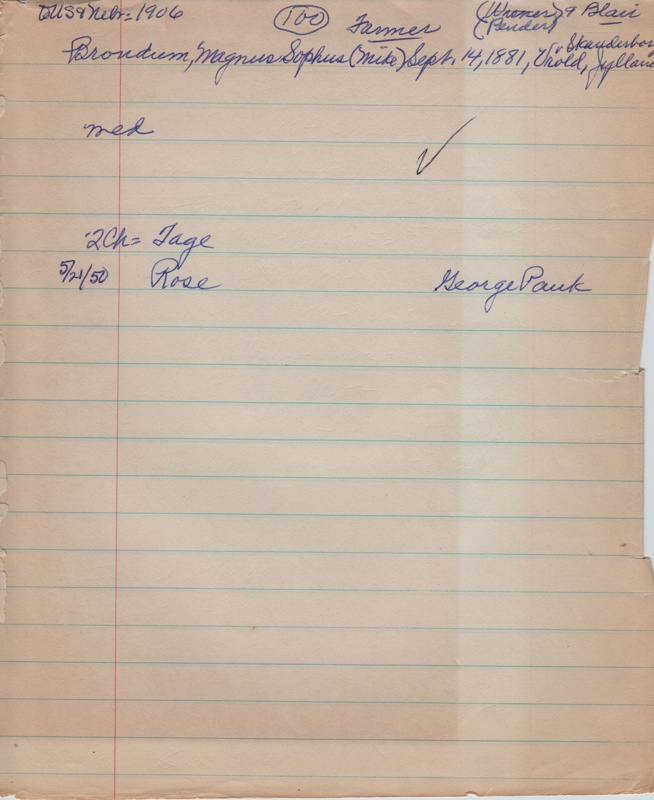 US & Nebr = 1906 (100) Farmer (Wisner) & Blair
(Pender)
Brondum, Magnus Sophus (Mike) Sept. 14, 1881, Vrold, Jylland
v. Skanderborg
med
✓
2Ch = Tage
5/21/50 Rose George Pauk